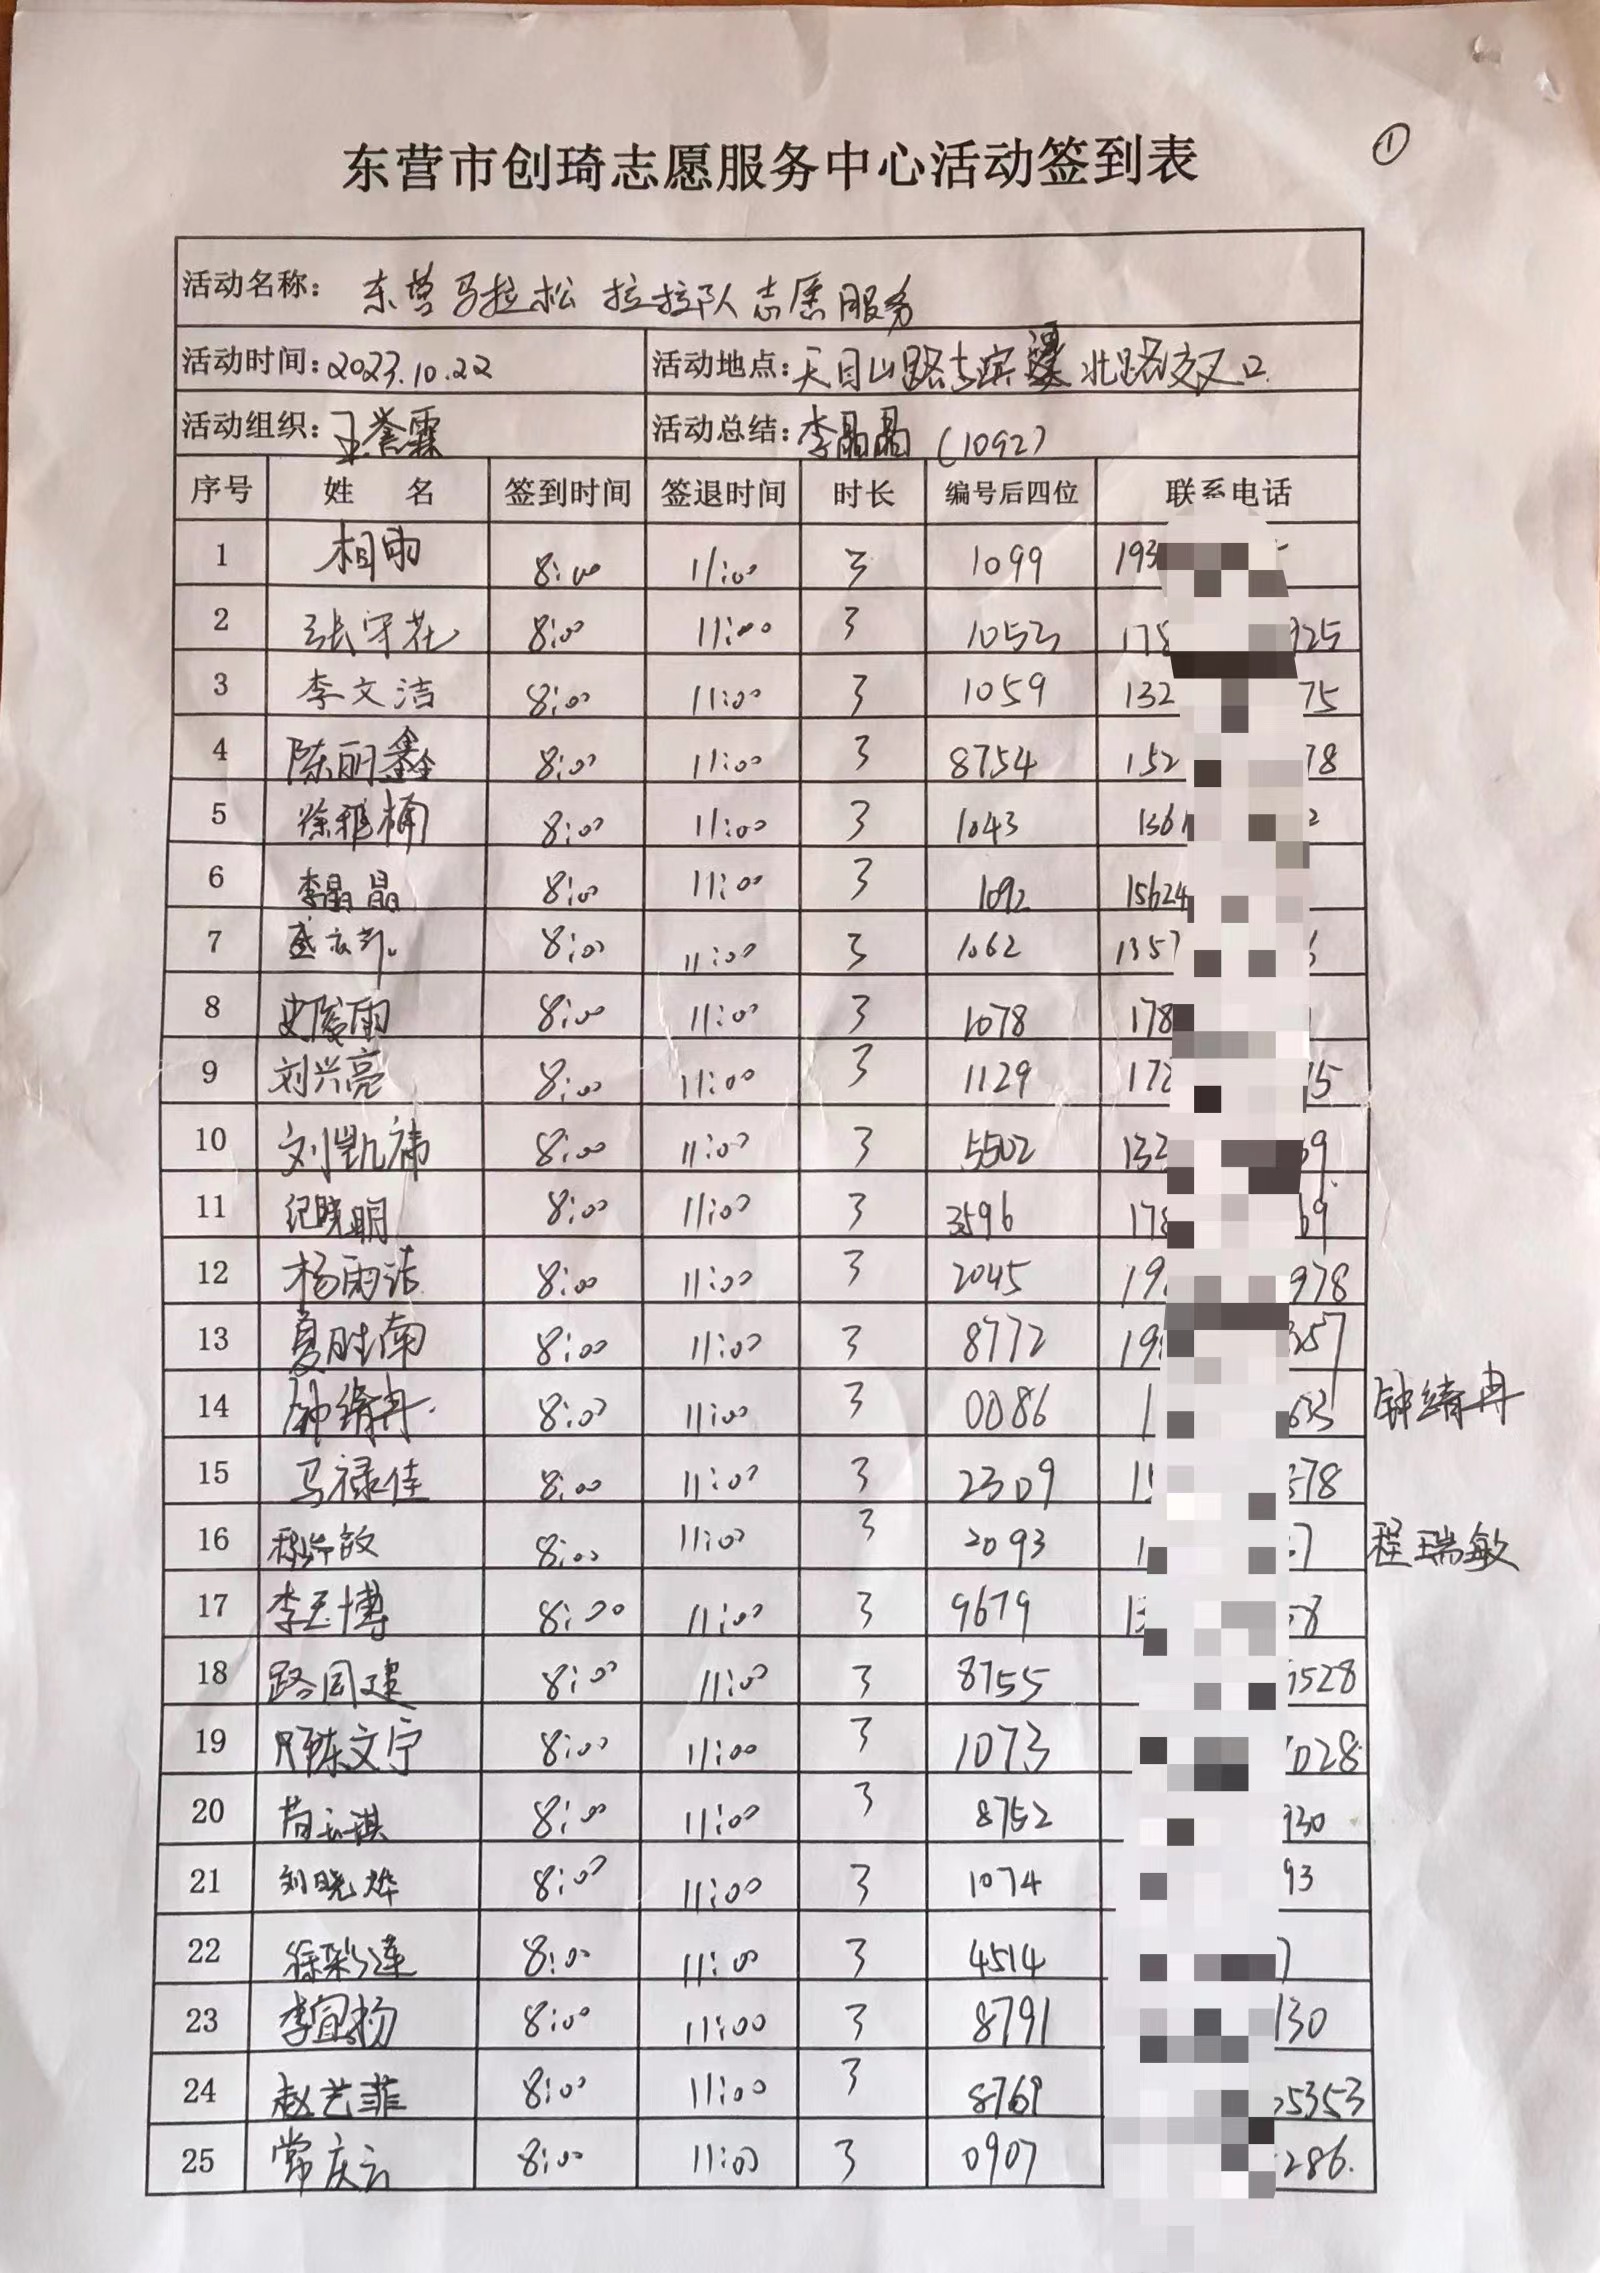 ①
东营市创琦志愿服务中心活动签到表
活动名称： 东营马拉松 拉拉队志愿服务
活动时间：2023.10.22 活动地点：天目山路与滨 北路交叉口
活动组织：王誉霖 活动总结：李晶晶（1092）
序号 姓 名 签到时间 签退时间 时长 编号后四位 联系电话
1 相雨 8:00 11:00 3 1099 193
2 张守花 8:00 11:00 3 1053 178 925
3 李文洁 8:00 11:00 3 1059 132 75
4 陈丽鑫 8:00 11:00 3 8754 152 78
5 徐雅楠 8:00 11:00 3 1043 1361 2
6 李晶晶 8:00 11:00 3 1092 15624
7 8:00 11:00 3 1062 1357
8 史俊雨 8:00 11:00 3 1078 178
9 刘兴亮 8:00 11:00 3 1129 172 15
10 刘凯祎 8:00 11:00 3 5502 132 69
11 纪晓明 8:00 11:00 3 3596 178 69
12 杨雨洁 8:00 11:00 3 2045 19 978
13 夏胜南 8:00 11:00 3 8772 19 357
14 钟绮冉 8:00 11:00 3 0086 1 633 钟绮冉
15 马禄佳 8:00 11:00 3 2309 1 578
16 程瑞敏 8:00 11:00 3 2093 1 7 程瑞敏
17 李玉博 8:00 11:00 3 9679 13 58
18 路同建 8:00 11:00 3 8755 528
19 陈文宁 8:00 11:00 3 1073 028
20 8:00 11:00 3 8752 930
21 刘晓烨 8:00 11:00 3 1074 93
22 徐彩莲 8:00 11:00 3 4514 7
23 李宜扬 8:00 11:00 3 8791 130
24 赵艺菲 8:00 11:00 3 8769 5353
25 常庆云 8:00 11:00 3 0907 286.